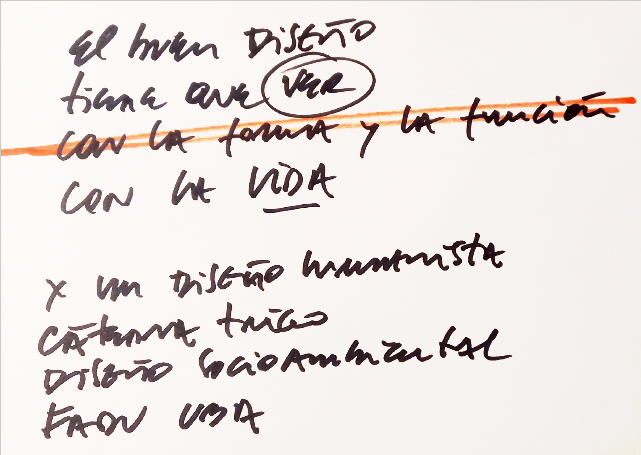 El buen DISEÑO
tiene que VER
con la forma y la función
con la VIDA
x un DISEÑO humanista
CÁTEDRA
DISEÑO SocioAmbiental
FADU UBA